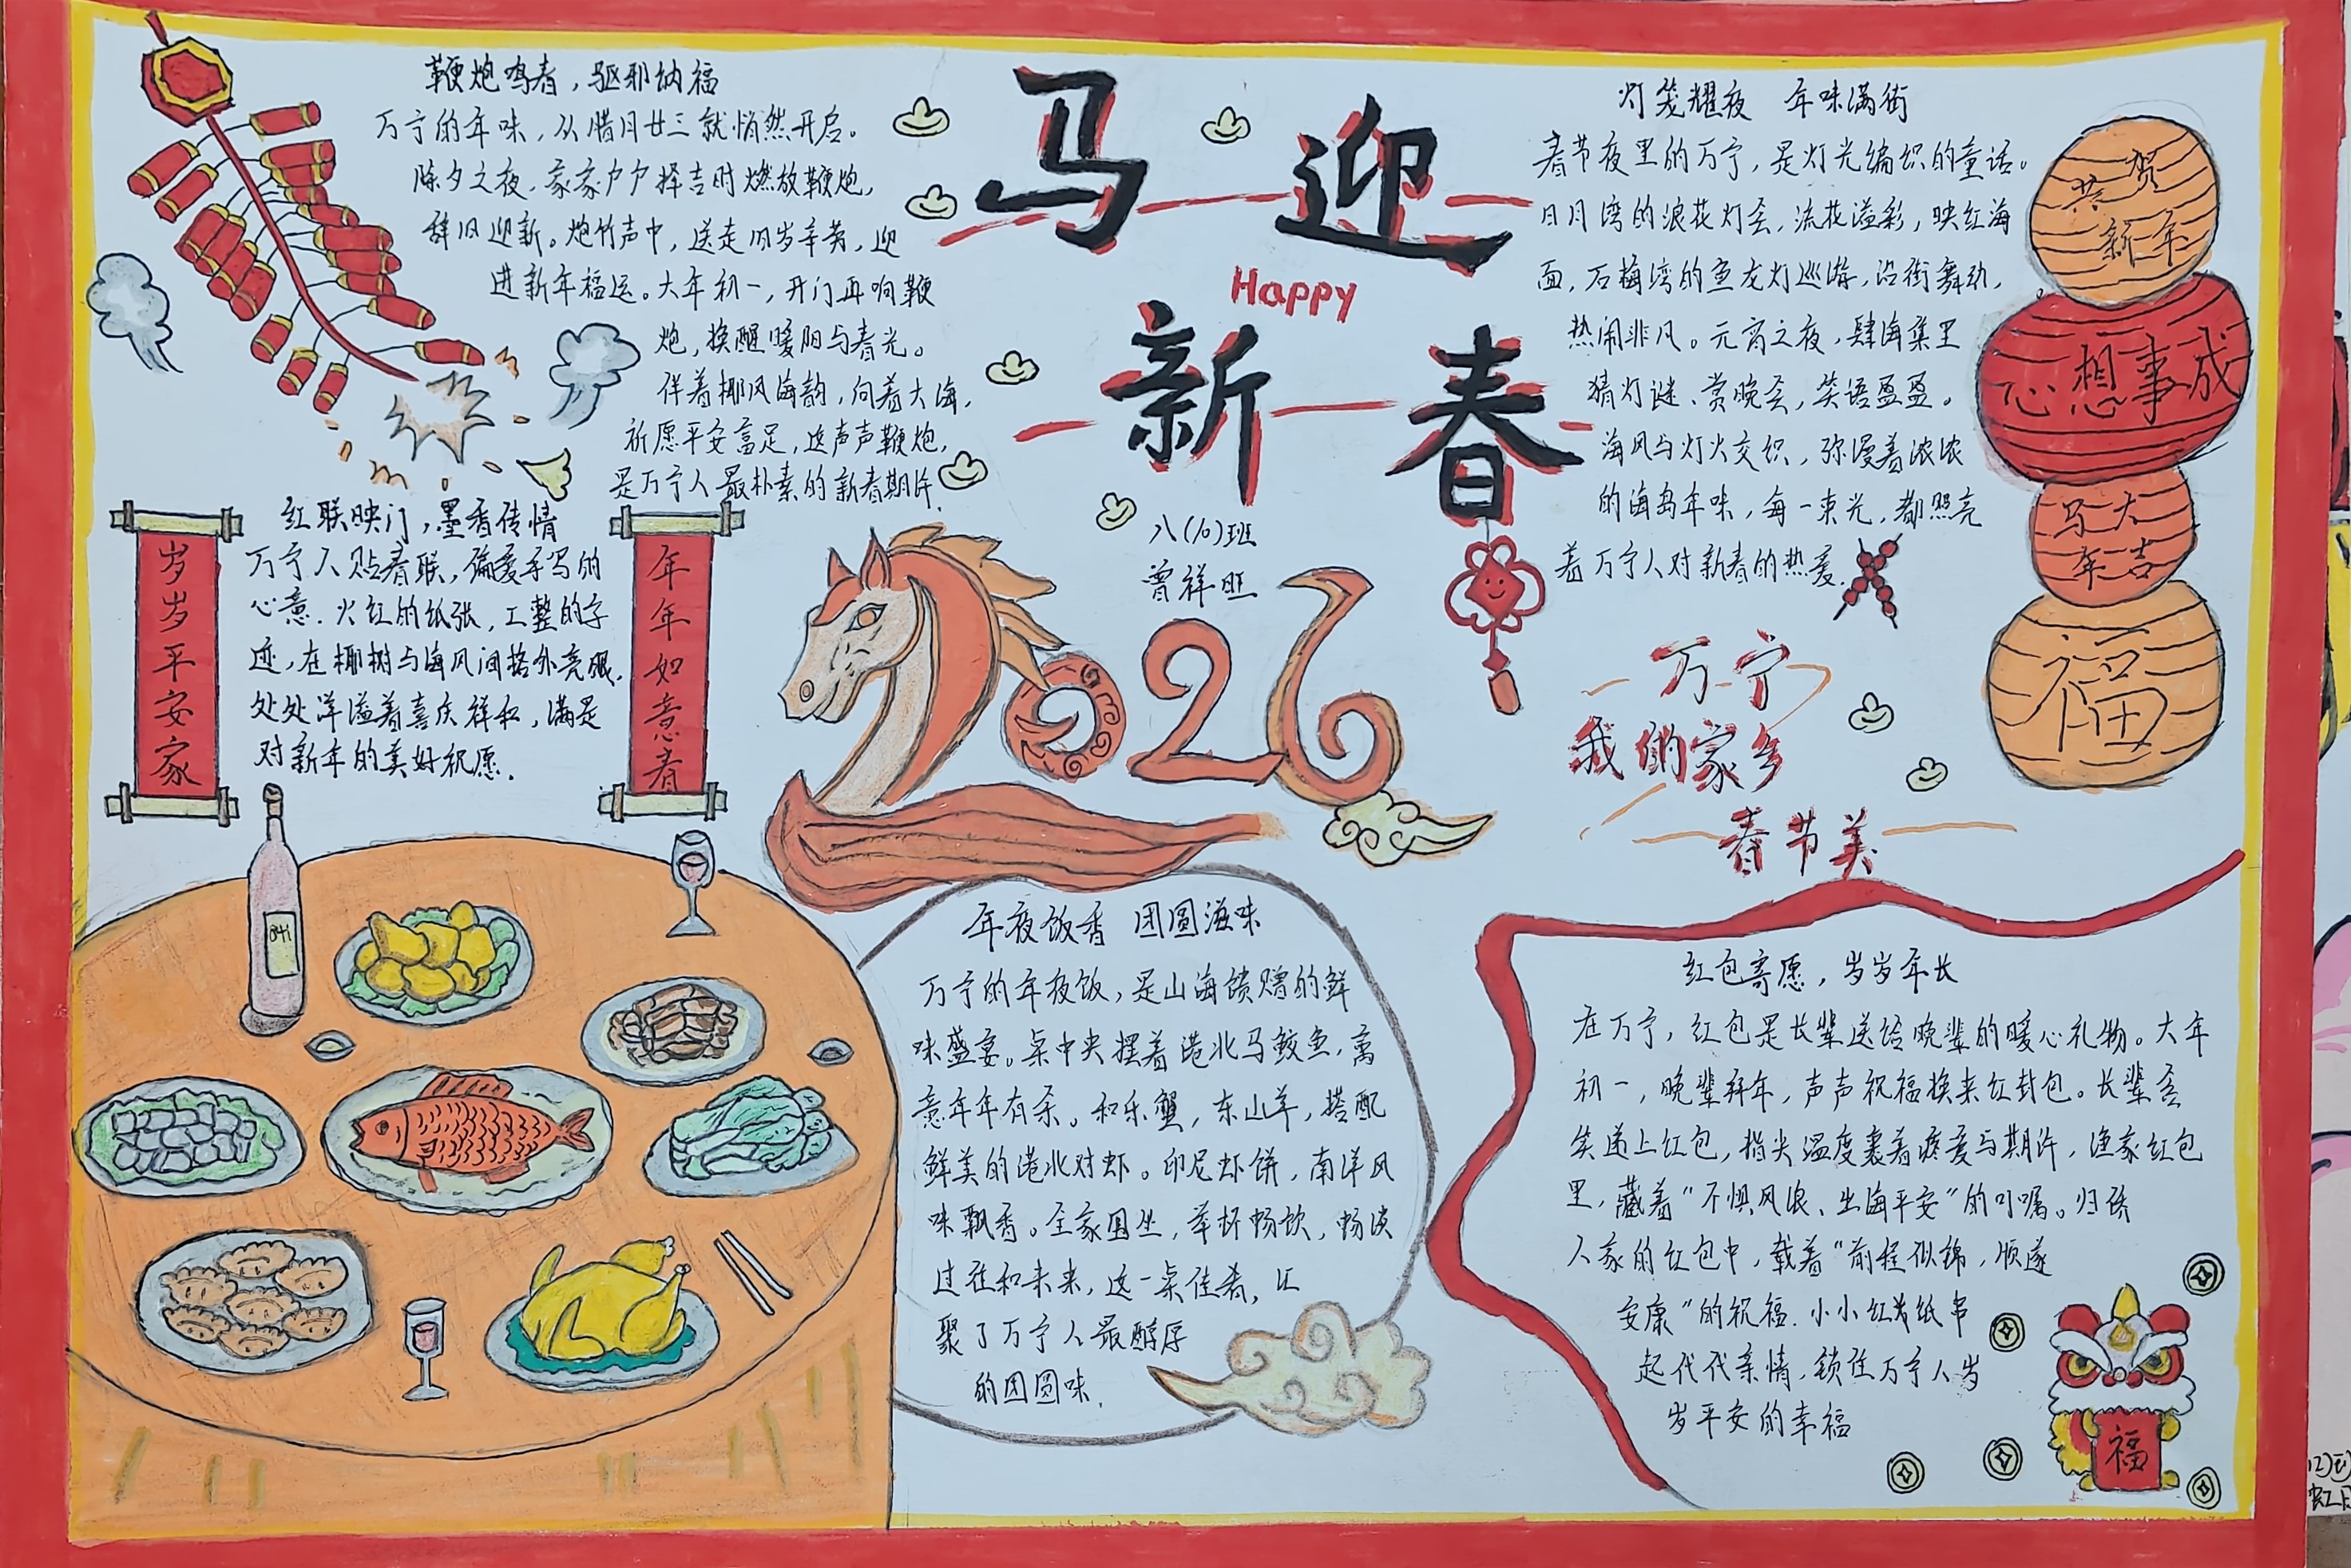 马迎
Happy
新春
八(10)班
曾祥旺
2026
鞭炮鸣春，驱邪纳福
万宁的年味，从腊月廿三就悄然开启。
除夕之夜，家家户户择吉时燃放鞭炮，
辞旧迎新。炮竹声中，送走旧岁辛劳，迎
进新年福运。大年初一，开门再响鞭
炮，换醒暖阳与春光。
伴着椰风海韵，向着大海，
祈愿平安富足，这声声鞭炮，
是万宁人最朴素的新春期许.
红联映门，墨香传情
万宁人贴春联，偏爱手写的
心意.火红的纸张，工整的字
迹，在椰树与海风间格外亮眼.
处处洋溢着喜庆祥和，满是
对新年的美好祝愿.
岁岁平安家
年年如意春
灯笼耀夜 年味满街
春节夜里的万宁，是灯光编织的童话。
日月湾的浪花灯会，流花溢彩，映红海
面，石梅湾的鱼龙灯巡游，沿街舞动，
热闹非凡。元宵之夜，肆海集里
猜灯谜、赏晚会，笑语盈盈。
海风与灯火交织，弥漫着浓浓
的海岛年味，每一束光，都照亮
着万宁人对新春的热爱.
恭贺
新年
心想事成
马大
年吉
福
万宁
我们家乡
春节美
年夜饭香 团圆滋味
万宁的年夜饭，是山海馈赠的鲜
味盛宴。桌中央摆着港北马鲛鱼，寓
意年年有余。和乐蟹，东山羊，搭配
鲜美的港北对虾。印尼虾饼，南洋风
味飘香。全家围坐，举杯畅饮，畅谈
过往和未来，这一桌佳肴，汇
聚了万宁人最醇厚
的团圆味.
红包寄愿，岁岁年长
在万宁，红包是长辈送给晚辈的暖心礼物。大年
初一，晚辈拜年，声声祝福换来红封包。长辈含
笑递上红包，指尖温度裹着疼爱与期许，渔家红包
里，藏着“不惧风浪、出海平安”的叮嘱。归侨
人家的红包中，载着“前程似锦，顺遂
安康”的祝福.小小红纸串
起代代亲情，锁住万宁人岁
岁平安的幸福
福